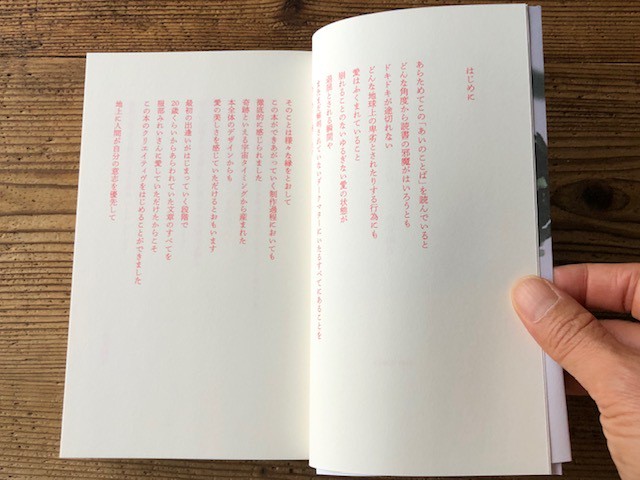 はじめに
あらためてこの「あいのことば」を読んでいると
どんな角度から読書の邪魔がはいろうとも
ドキドキが途切れない
どんな地球上の卑劣とされたりする行為にも
愛はふくまれていること
崩れることのないゆるぎない愛の状態が
退屈とされる瞬間や
されていないダークマターにいたるすべてにあることを
そのことは様々な縁をとおして
この本ができあがっていく制作過程においても
徹底的に感じられました
奇跡といえる宇宙タイミングから産まれた
本全体のデザインからも
愛の美しさを感じていただけるとおもいます
最初の出逢いがはじまっていく段階で
20歳くらいからあらわれていた文章のすべてを
服部みれいさんに愛していただけたからこそ
この本のクリエイティヴをはじめることができました
地上に人間が自分の意志を優先して